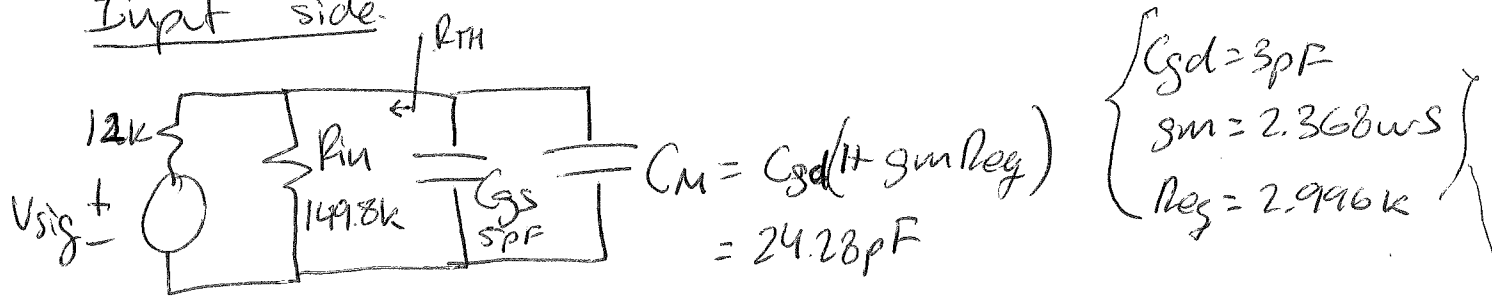 Input side.
RTH
12k
Rin
149.8k
Vsig
+
-
Cgs
5pF
CM = Cgd(1+ gm Req)
= 24.28pF
Cgd = 3pF
gm = 2.368mS
Req = 2.996k